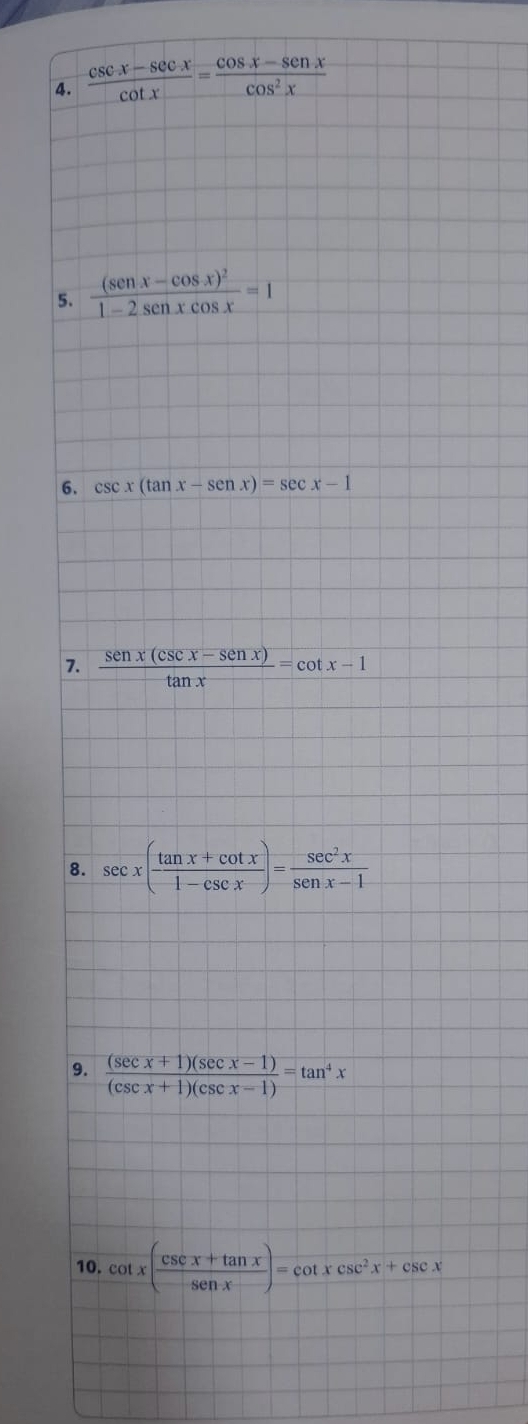 4. (csc x − sec x)/(cot x) = (cos x − sen x)/(cos² x)
5. (sen x − cos x)²/(1 − 2 sen x cos x) = 1
6. csc x (tan x − sen x) = sec x − 1
7. sen x (csc x − sen x)/(tan x) = cot x − 1
8. sec x ((tan x + cot x)/(1 − csc x)) = sec² x/(sen x − 1)
9. (sec x + 1)(sec x − 1)/(csc x + 1)(csc x − 1) = tan⁴ x
10. cot x ((csc x + tan x)/(sen x)) = cot x csc² x + csc x